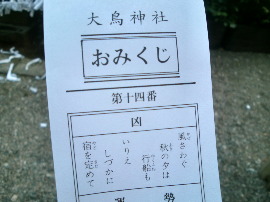 大鳥神社
おみくじ
第十四番
凶
風さわぐ
秋の夕は
行船も
いりえ
しづかに
宿を定めて
勢